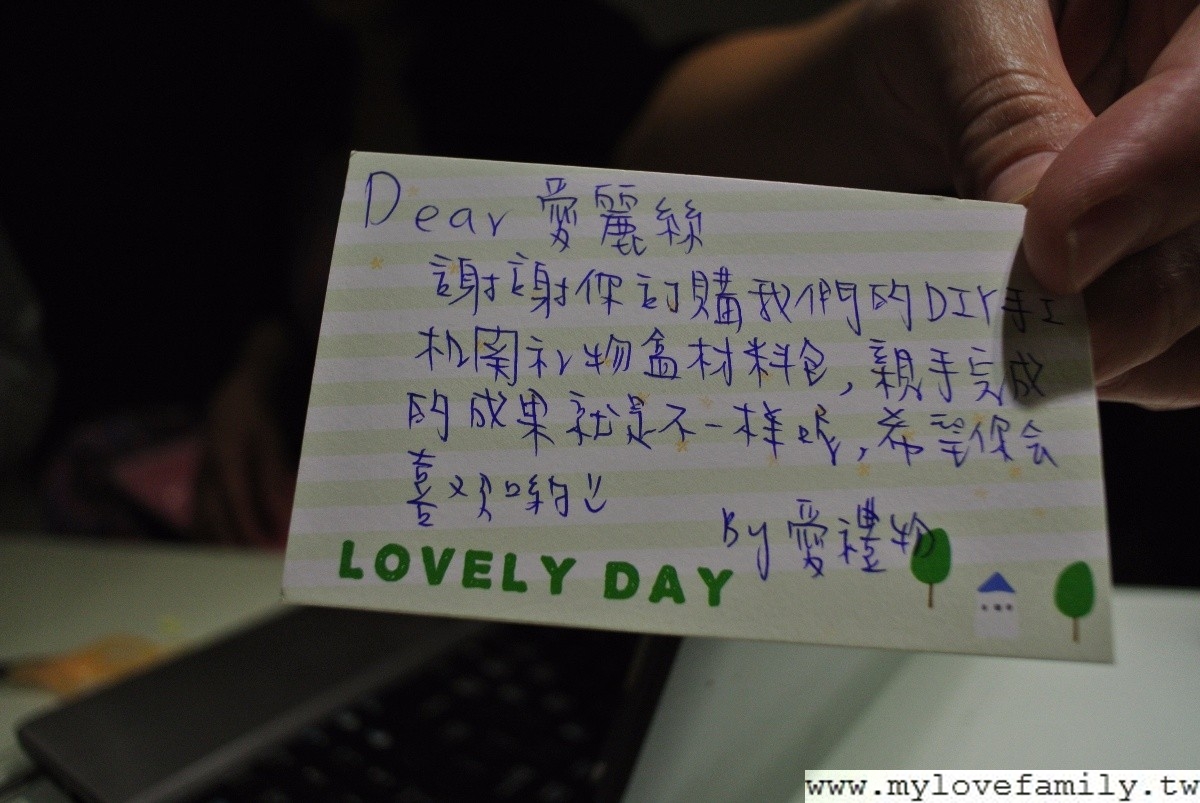 Dear 愛麗絲
謝謝你訂購我們的DIY手工
机関礼物盒材料包,親手完成
的成果就是不一樣呢,希望你会
喜欢喲!!
By 愛禮物
LOVELY DAY
www.mylovefamily.tw